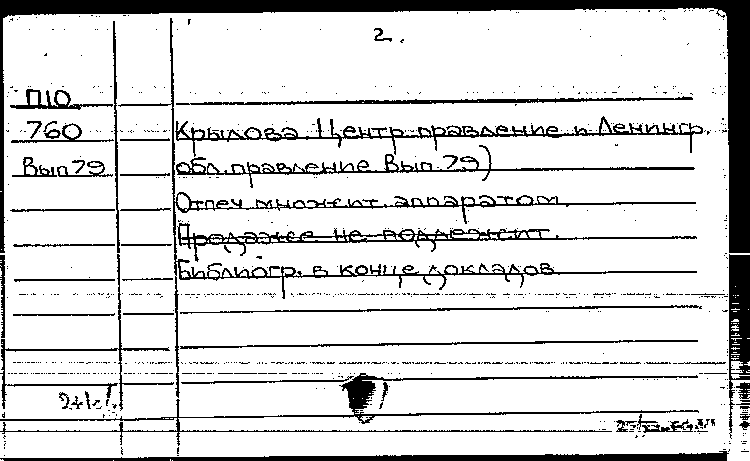 2.
П10
760
Вып 79
Крылова. Центр. правление и Ленингр.
обл. правление Вып. 79)
Отпеч. множит. аппаратом.
Продаже не подлежит.
Библиогр. в конце докладов